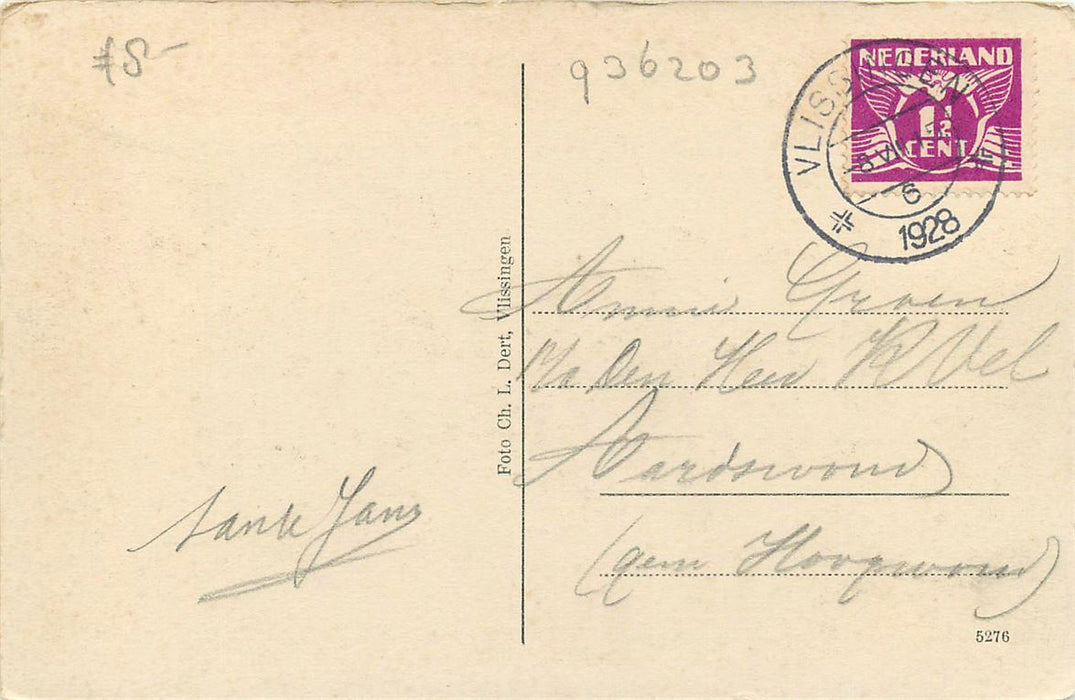 f 8-
936203
NEDERLAND
1½
CENT
VLISSINGEN
8 VII
6
1928
Foto Ch. L. Dert, Vlissingen
Annie Groen
p/a Den Heer K Vel
Aardswoud
(gem Hoogwoud)
tante Jans
5276